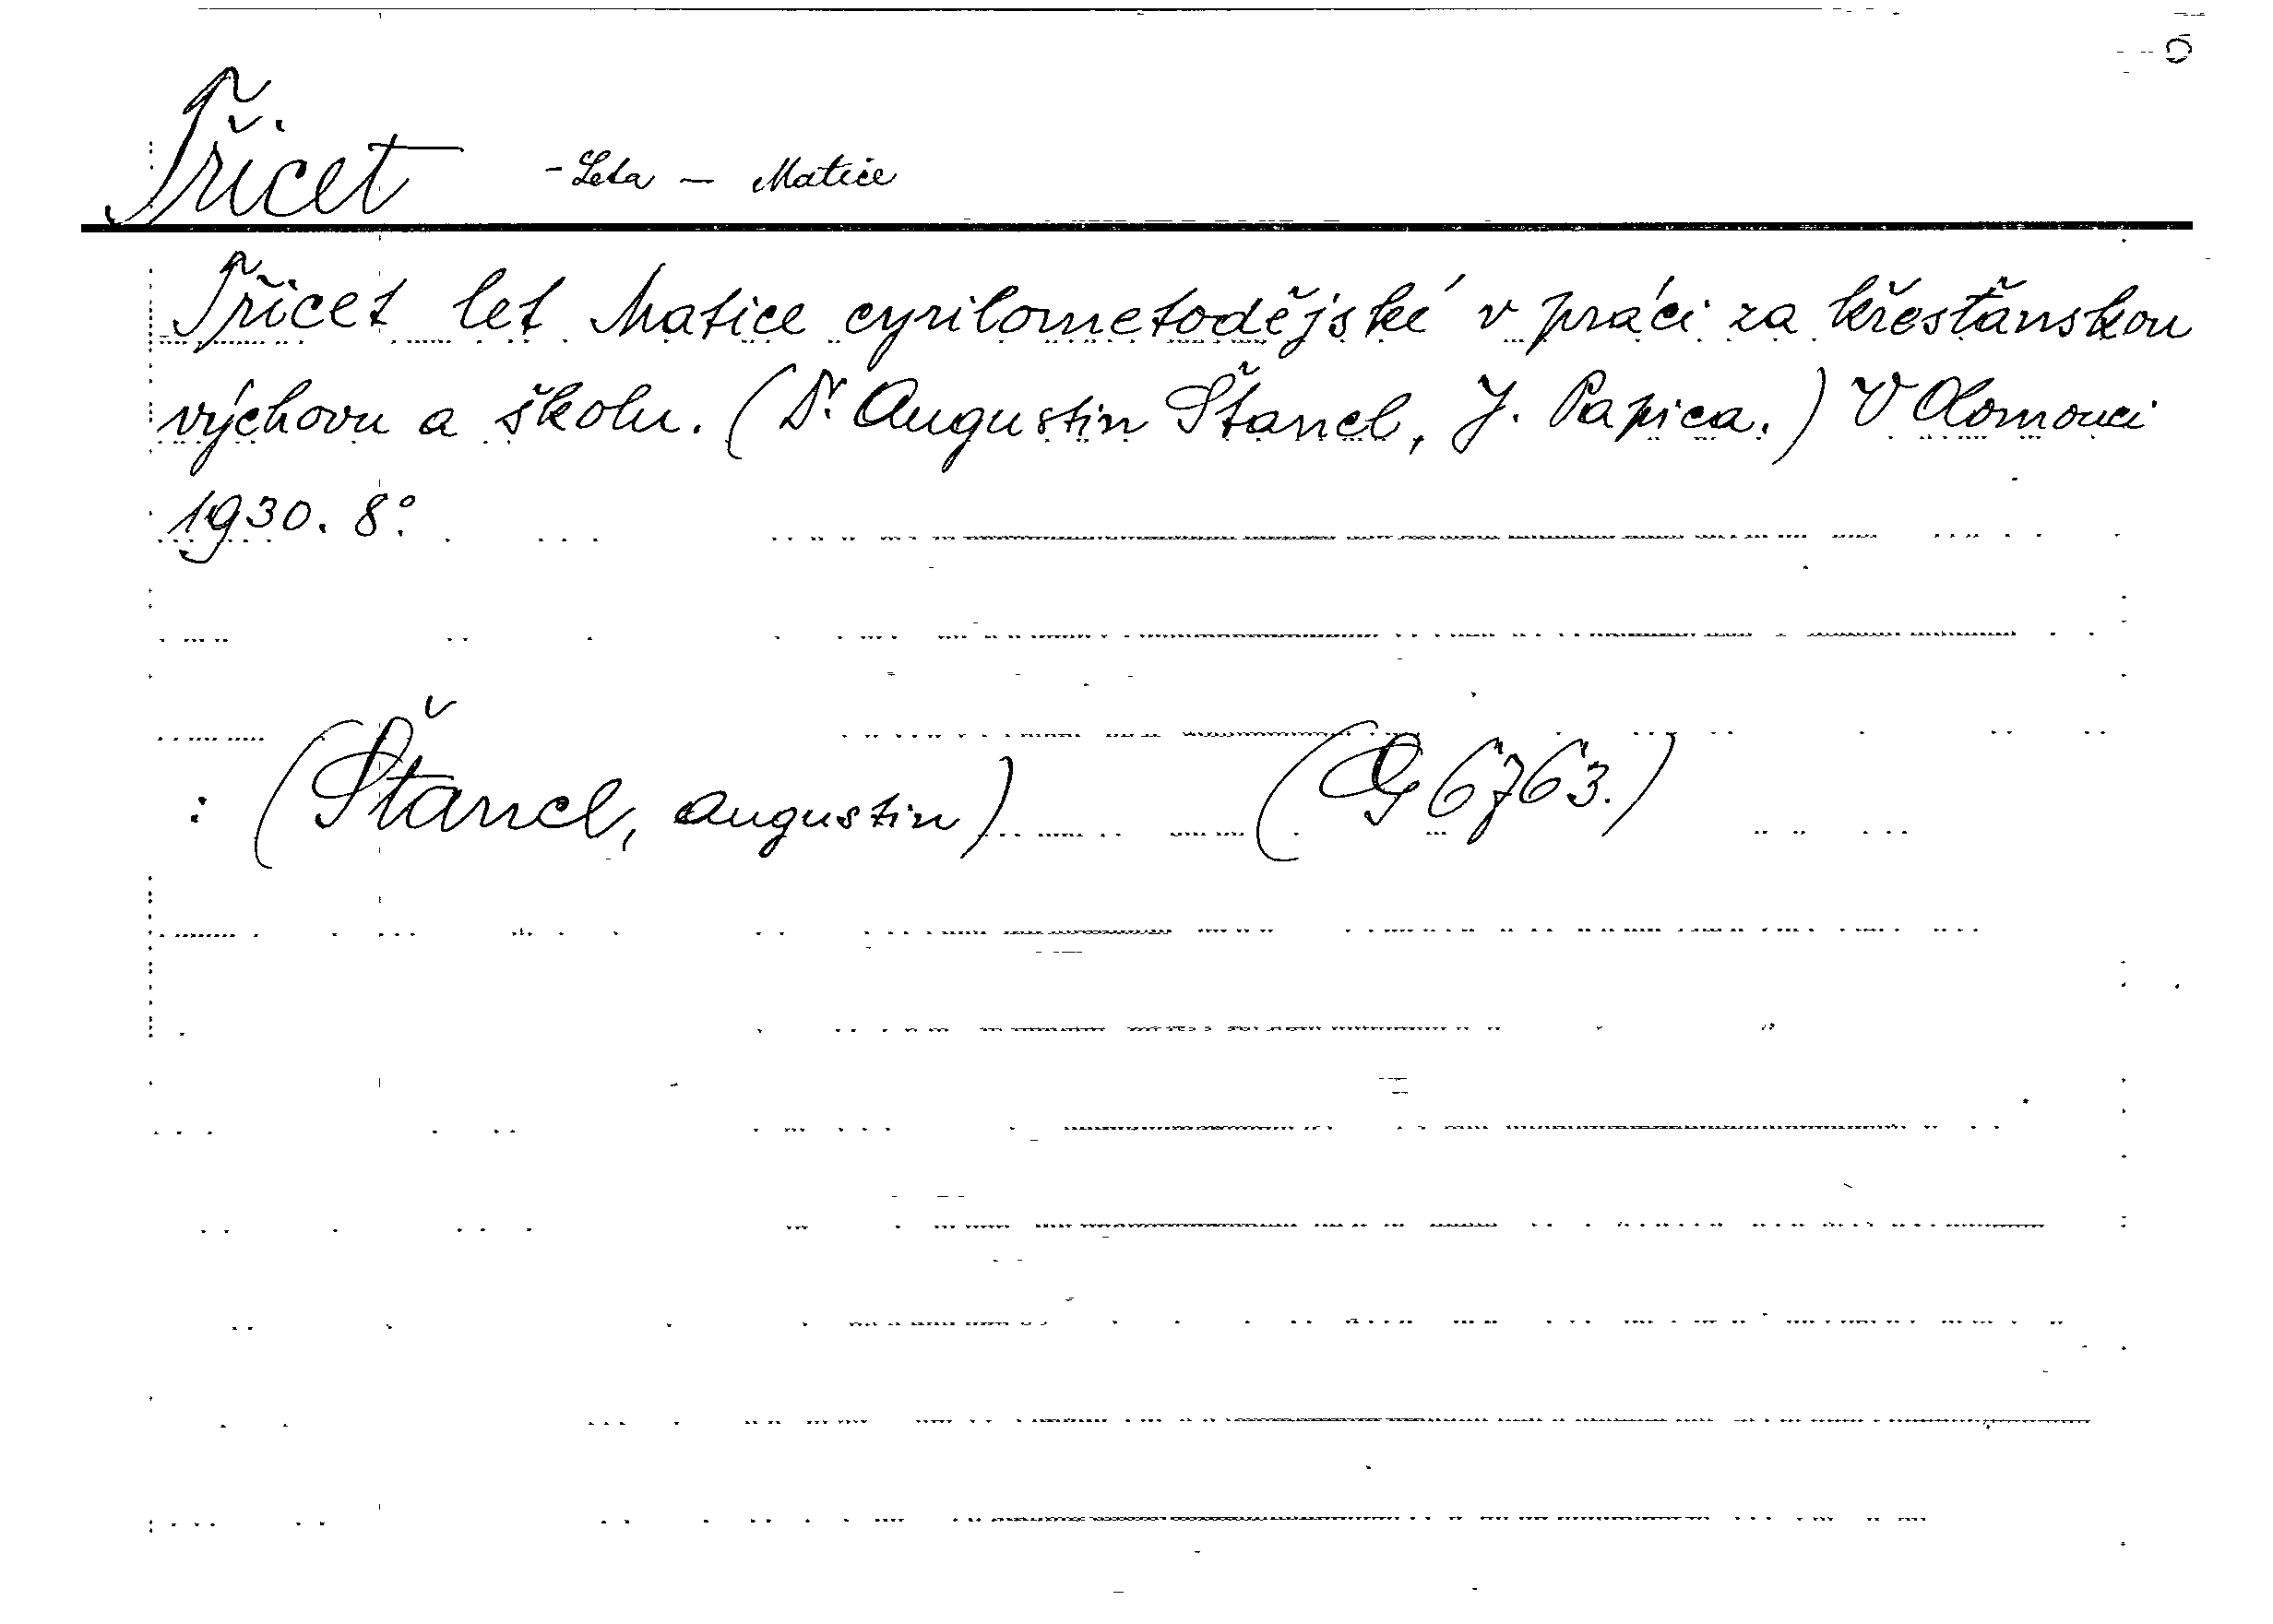 Třicet - Leta - Matice
Třicet let Matice cyrilometodějské v práci za křesťanskou
výchovu a školu. (Dr. Augustin Štancl, J. Papica.) V Olomouci
1930. 8°.
: (Štancl, Augustin) (G 6763.)